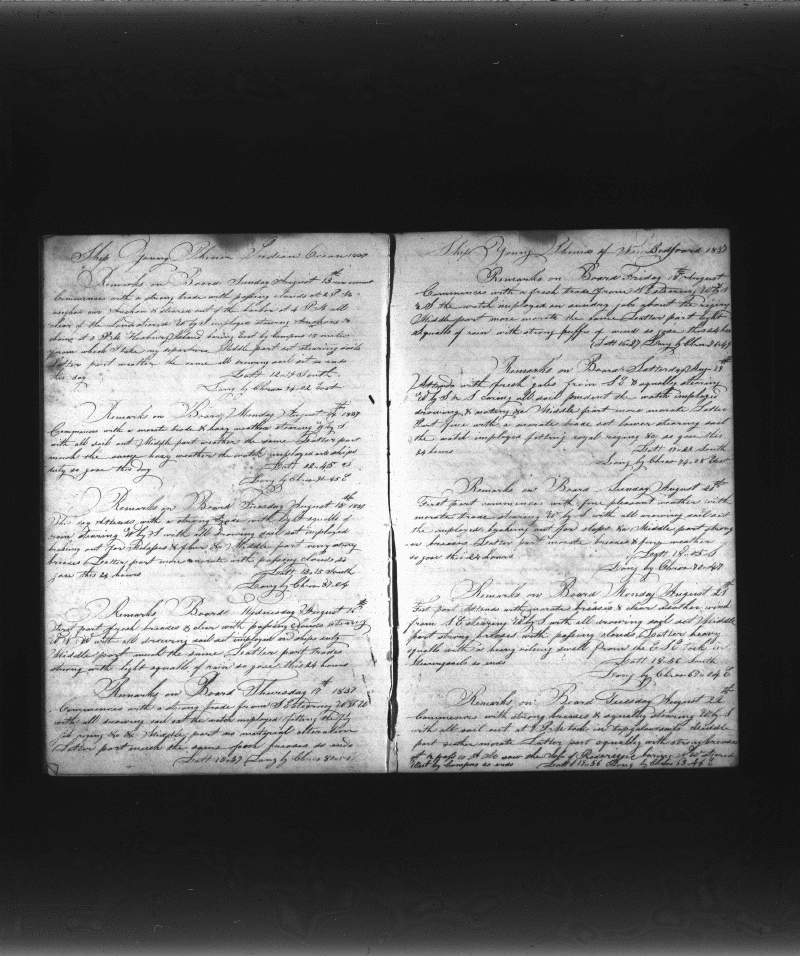 Ship Young Phenix Indian Ocean 1837
Remarks on Board Sunday August 13th
Commences with a strong trade with passing clouds at 2 P. M.
weighed our Anchor & cleared out of the harbor at 4 P M all
clear of the W by S employed stowing Anchors &
at 8 P. M. Island bearing East by Compass 15 miles
from which I take my departure Middle part set steering sails
Latter part weather the same all drawing sail set so ends
this day Latt 12.. South
Long by Chron 94.02 East
Remarks on Board Monday August 14th 1837
Commences with a morate trade & hazy weather stearing W by S
with all sail out Middle part weather the same Latter part
much the same hazy weather the watch employed on ships
duty so goes this day Latt 12.45 S
Long by Chron 90.45 E
Remarks on Board Tuesday August 15th 1837
This day Attends with a strong trade with light squalls of
rain stearing W by S with all drawing sail set employed
breaking out for & flour &c Middle part very strong
breezes Latter part more morate with passing clouds so
goes this 24 hours Latt 13.15 South
Long by Chron 87.04
Remarks Board Wednesday August 16th
First part fresh breezes & clear with passing clouds stearing
with all drawing sail set employed on ships duty
Middle part much the same Latter part trades
strong with light squalls of rain so goes this 24 hours
Remarks on Board Thursday 17th 1837
Commences with a strong trade from S E stearing W by S
with all drawing sail set the watch employed fitting the
jib riging &c &c Middle part no matereal alteration
Latter part much the same fresh breezes so ends
Latt Long by Chron
Ship Young Phenix of New Bedford 1837
Remarks on Board Friday 18th August
Commences with a fresh trade from S E stearing W by S
& S the watch employed on sunday jobs about the riging
Middle part more morate the same Latter part light
squalls of rain with strong puffs of wind so goes this 24 hours
Latt 16.27 Long by Chron
Remarks on Board Satterday Aug 19th
Attends with fresh gales from S E & squally stearing
W by S & S Carring all sail prudent the watch employed
drawing & noting &c Middle part more morate Latter
Part fine with a morate trade set lower stearing sail
the watch employed fitting royal riging &c so goes this
24 hours Latt 17.23 South
Long by Chron 74.08 East
Remarks on Board Sunday August 20th
First part commences with fine pleasant weather with
morate trade stearing W by S with all drawing sail set
the employed breaking out for slops &c Middle part strong
breezes Latter part morate breezes & foggy weather
so goes this 24 hours Latt 18.05 S
Long by Chron 70.47
Remarks on Board Monday August 21st
First part Attends with morate breezes & clear weather wind
from S E stearing W by S with all drawing sail set Middle
part strong breezes with passing clouds Latter heavy
squalls with a heavy rolling swell from the E S E took in
stearingsails so ends Latt 18.56 South
Long by Chron 67.04 E
Remarks on Board Tuesday August 22nd
Commences with strong breezes & squally stearing W by S
with all sail out at 7 P.M. took in topgalantsails Middle
part rather morate Latter part squally with strong breezes
at past 10 A M saw the Isle of Roderigue bearing
West by Compass so ends Latt Long by Chron 63.44 E